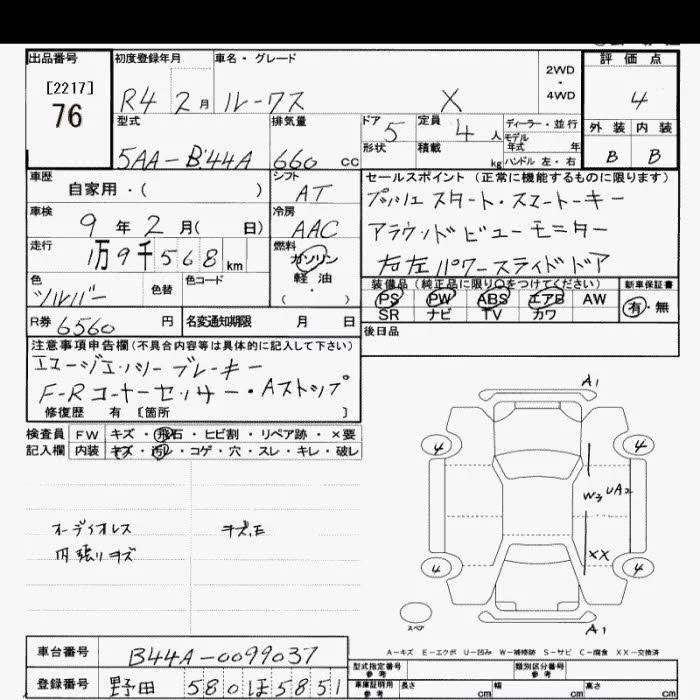 出品番号
[2217]
76
初度登録年月
R4 2月
車名・グレード
ルークス X
2WD
・
4WD
評価点
4
外装 内装
B B
型式
5AA-B44A
排気量
660 cc
ドア 5
形状
定員 4人
積載 kg
ディーラー・並行
モデル
年式 年
ハンドル 左・右
車歴
自家用・( )
シフト
AT
車検
9年2月( 日)
冷房
AAC
走行
1万9千568km
燃料
ガソリン
軽油
・
( )
色
シルバー
色替
色コード
R券 6560円
名変通知期限 月 日
セールスポイント (正常に機能するものに限ります)
プッシュスタート・スマートキー
アラウンドビューモニター
右左パワースライドドア
装備品(純正品に限り○をつけてください)
新車保証書
PS PW ABS エアB AW
SR ナビ TV カワ
有・無
後日品
注意事項申告欄(不具合内容等は具体的に記入して下さい)
エマージエンシーブレーキー
F-Rコーナーセンサー・Aストップ
修復歴 有 〔箇所 〕
検査員
記入欄
FW キズ・飛石・ヒビ割・リペア跡・×要
内装 キズ・汚レ・コゲ・穴・スレ・キレ・破レ
オーディオレス
内張りキズ
A1
4
4
W3
UA2
XX
4
4
スペア
A1
A-キズ E-エクボ U-凹み W-補修跡 S-サビ C-腐食 XX-交換済
車台番号
B44A-0099037
登録番号
野田 580 ほ 5851
型式指定番号
参考
類別区分番号
参考
車庫証明用
参考
長さ cm
幅 cm
高さ cm